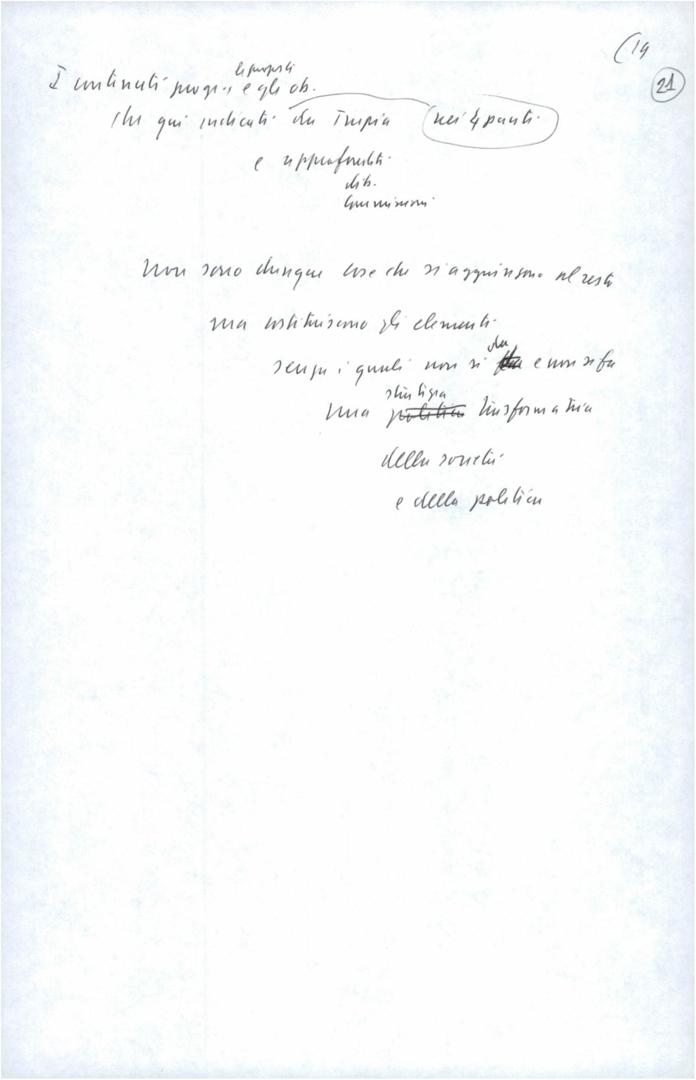 (19
21
le proposte
I contenuti e gli ob.
che qui indicati da Trupia nei 4 punti
e approfonditi
dib.
Commissioni
Non sono dunque cose che si aggiungono al resto
ma costituiscono gli elementi
senza i quali non si dà e non si fa
una strategia trasformatrice
della società
e della politica